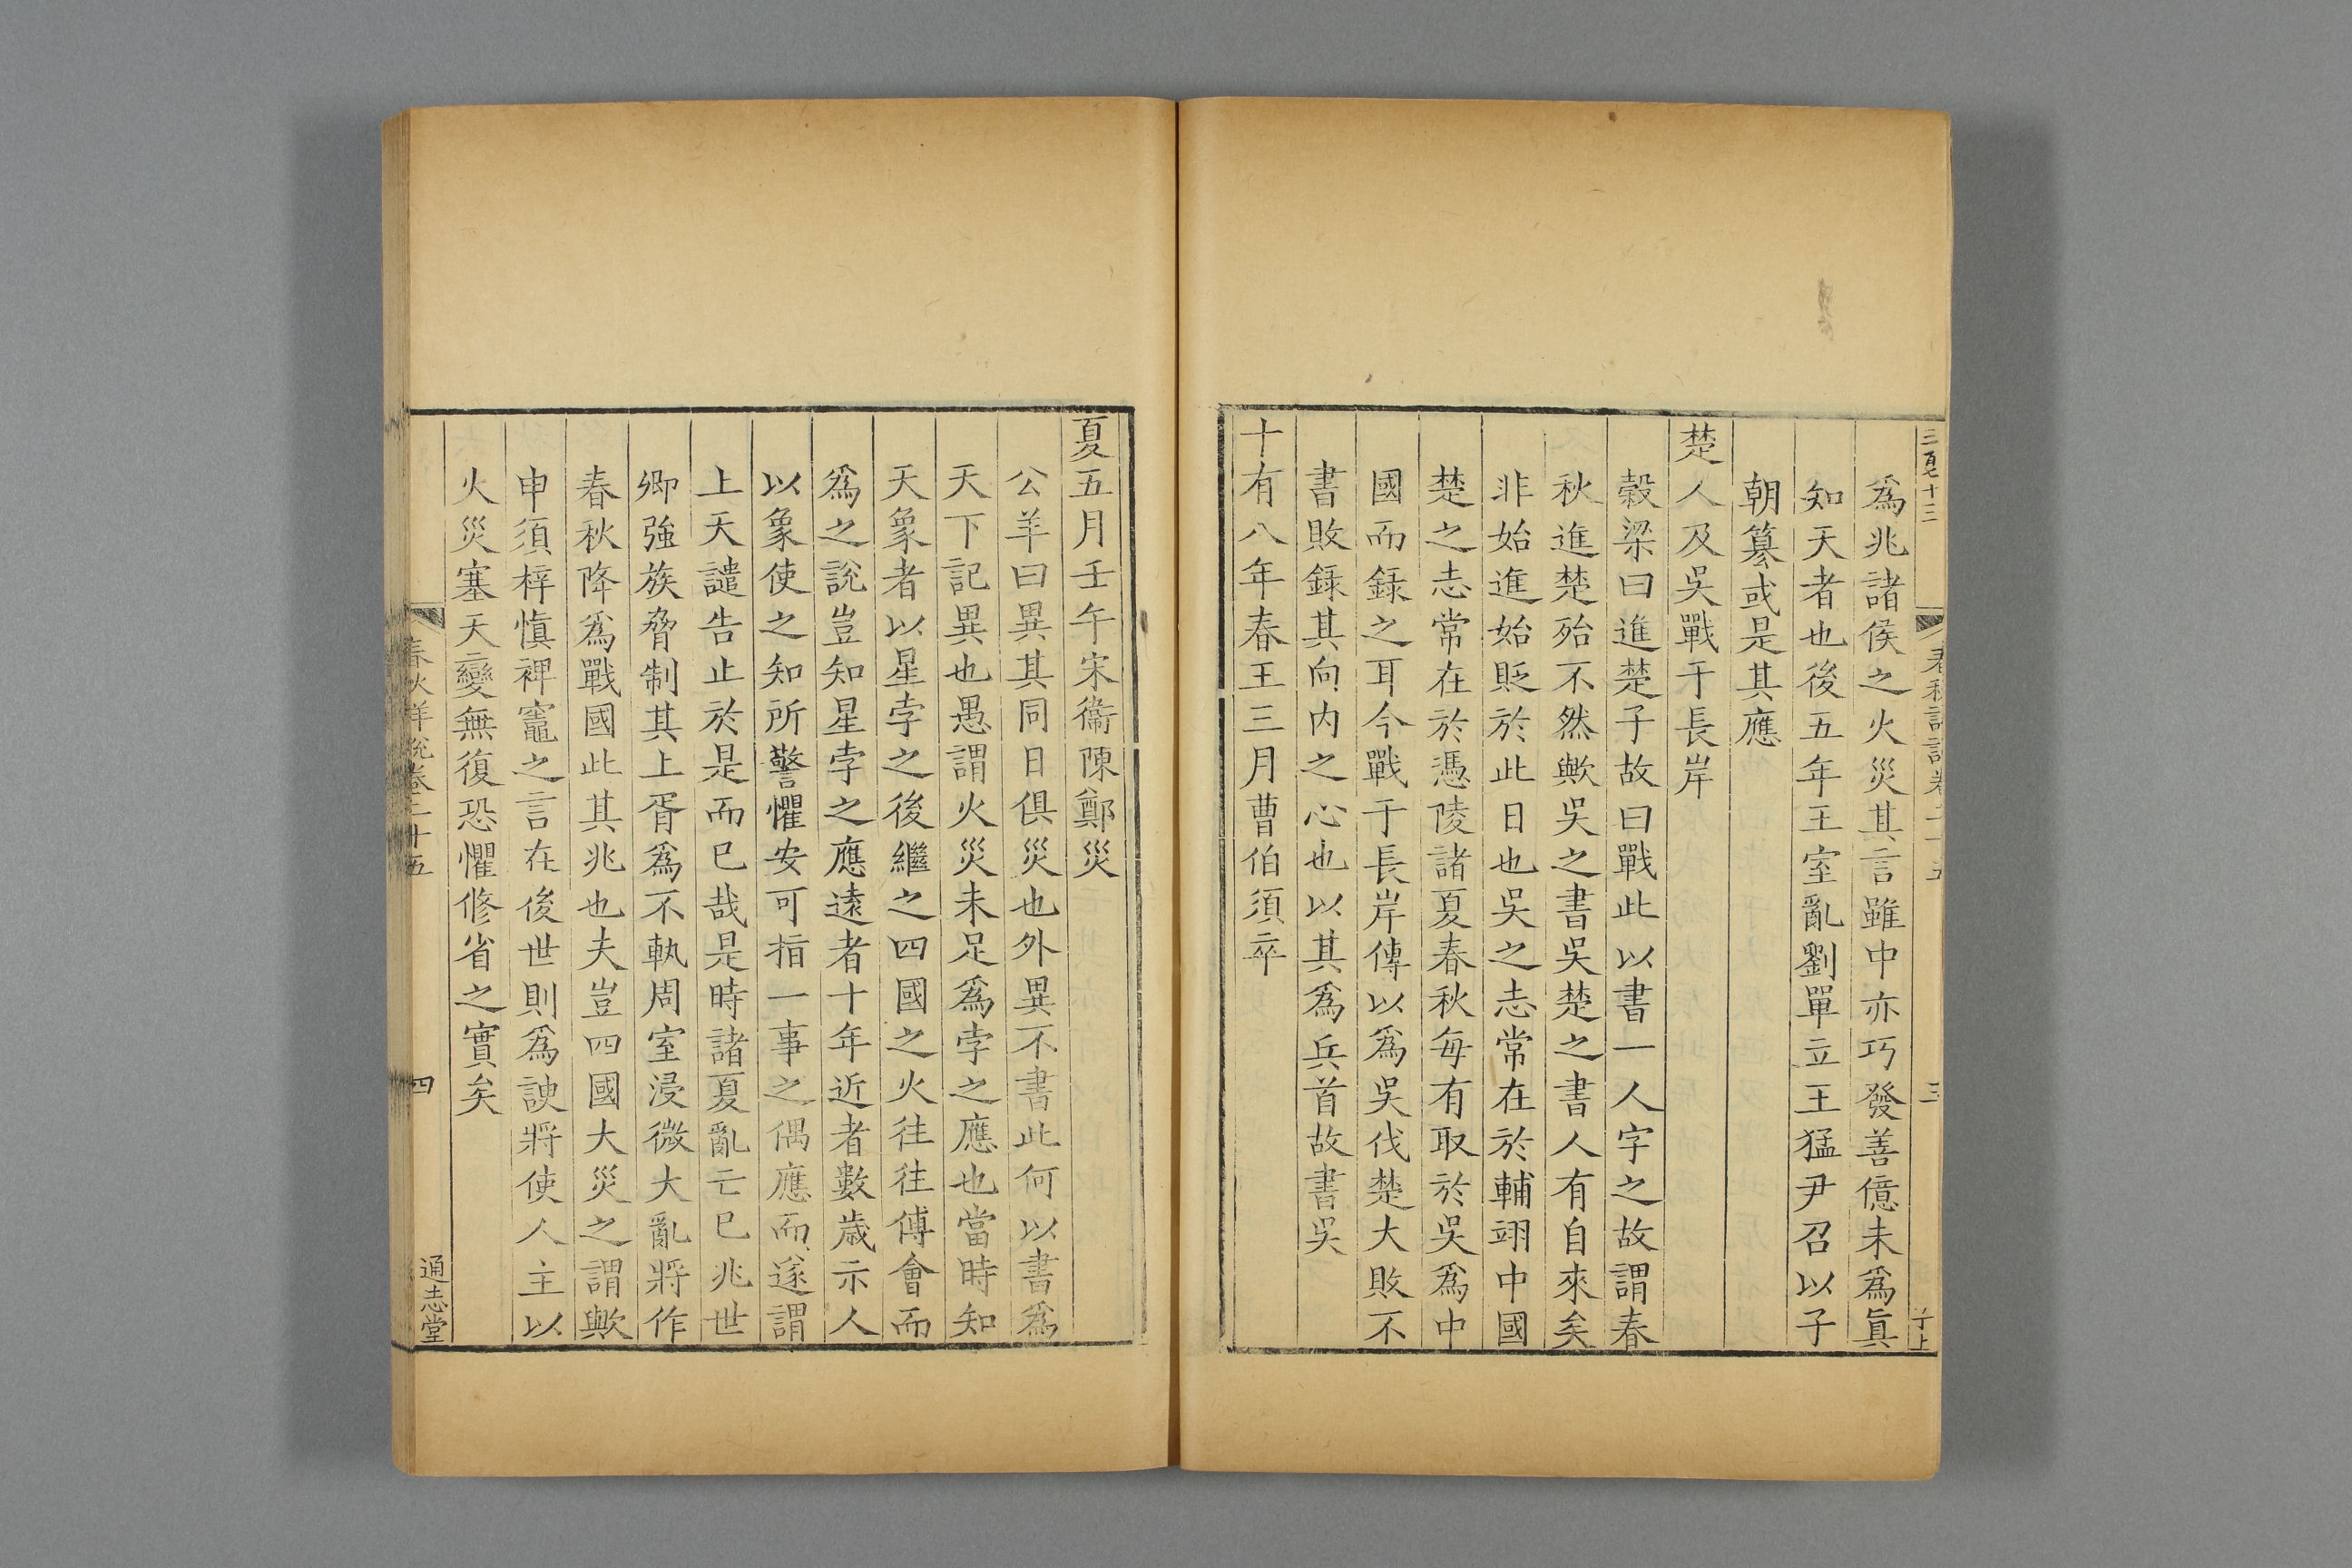 三百七十三
春秋詳說卷二十五
三
爲兆諸侯之火災其言雖中亦巧發善億未爲眞
知天者也後五年王室亂劉單立王猛尹召以子
朝簒或是其應
楚人及吳戰于長岸
穀梁曰進楚子故曰戰此以書一人字之故謂春
秋進楚殆不然歟吳之書吳楚之書人有自來矣
非始進始貶於此日也吳之志常在於輔翊中國
楚之志常在於馮陵諸夏春秋每有取於吳爲中
國而錄之耳今戰于長岸傳以爲吳伐楚大敗不
書敗錄其向内之心也以其爲兵首故書吳
十有八年春王三月曹伯須卒
夏五月壬午宋衞陳鄭災
公羊曰異其同日俱災也外異不書此何以書爲
天下記異也愚謂火災未足爲孛之應也當時知
天象者以星孛之後繼之四國之火往往傅會而
爲之說豈知星孛之應遠者十年近者數歲示人
以象使之知所警懼安可指一事之偶應而遂謂
上天譴告止於是而已哉是時諸夏亂亡已兆世
卿強族脅制其上胥爲不軌周室浸微大亂將作
春秋降爲戰國此其兆也夫豈四國大災之謂歟
申須梓愼裨竈之言在後世則爲諛將使人主以
火災塞天變無復恐懼修省之實矣
春秋詳說卷二十五
四
通志堂